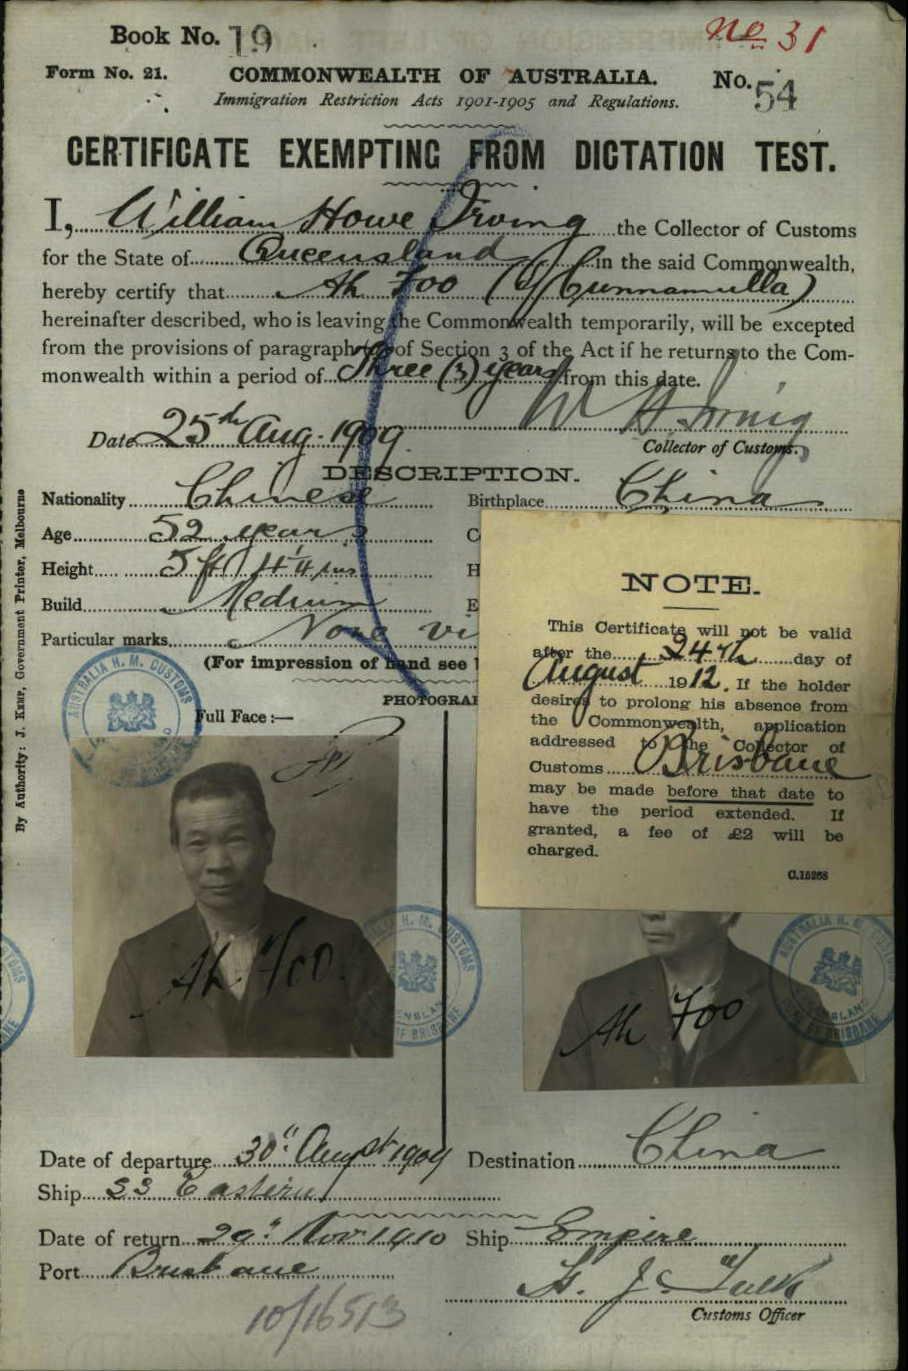 Book No. 19
no 31
Form No. 21.
COMMONWEALTH OF AUSTRALIA.
No. 54
Immigration Restriction Acts 1901-1905 and Regulations.
CERTIFICATE EXEMPTING FROM DICTATION TEST.
I, William Howe Irving the Collector of Customs
for the State of Queensland in the said Commonwealth,
hereby certify that Ah Foo (of Cunnamulla)
hereinafter described, who is leaving the Commonwealth temporarily, will be excepted
from the provisions of paragraph of Section 3 of the Act if he returns to the Com-
monwealth within a period of Three (3) years from this date.
W H Irving
Date 25th Aug. 1909
Collector of Customs.
DESCRIPTION.
Nationality Chinese
Birthplace China
Age 52 years
C
Height 5 ft 4 1/4 ins
H
Build Medium
Particular marks None vi
(For impression of hand see
PHOTOGRA
Full Face:—
By Authority: J. Kemp, Government Printer, Melbourne
NOTE.
This Certificate will not be valid
after the 24th day of
August 1912. If the holder
desires to prolong his absence from
the Commonwealth, application
addressed to the Collector of
Customs Brisbane
may be made before that date to
have the period extended. If
granted, a fee of £2 will be
charged.
C.15268
AUSTRALIA H. M. CUSTOMS
Ah Foo
Ah Foo
AUSTRALIA H. M. CUSTOMS
QUEENSLAND
PORT OF BRISBANE
Date of departure 30th August 1909
Destination China
Ship SS Eastern
Date of return 29th Nov 1910
Ship Empire
Port Brisbane
Customs Officer
10/16513